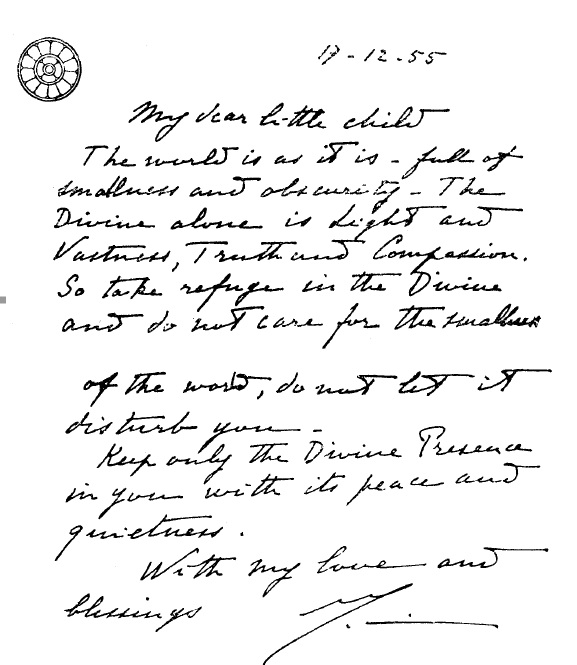 17-12-55
My dear little child
The world is as it is - full of
smallness and obscurity - The
Divine alone is Light and
Vastness, Truth and Compassion.
So take refuge in the Divine
and do not care for the smallness
of the world, do not let it
disturb you -
Keep only the Divine Presence
in you with its peace and
quietness.
With my love and
blessings